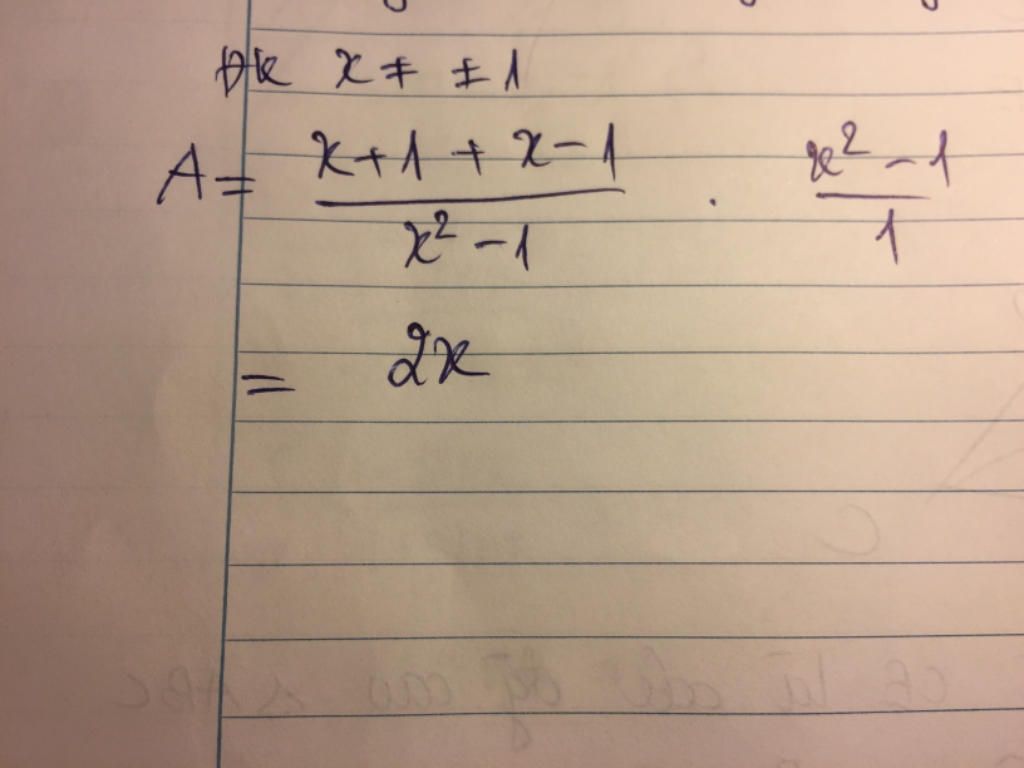 ĐK x ≠ ±1
A = (x+1 + x-1)/(x² - 1) . (x² - 1)/1
= 2x